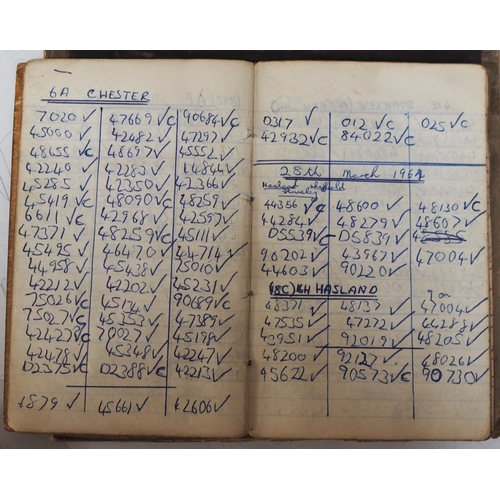 6A CHESTER
7020 ✓ 47669 ✓C 90684 ✓C
45000 ✓ 42482 ✓ 47297 ✓
48655 ✓C 48697 ✓ 45552 ✓
42240 ✓ 42283 ✓ 44844 ✓
45285 ✓ 42350 ✓ 42366 ✓
45419 ✓C 48090 ✓C 48259 ✓
6611 ✓C 42968 ✓ 42597 ✓
47371 ✓ 48259 ✓C 45111 ✓
45495 ✓ 46470 ✓ 44714 ✓
44958 ✓ 45438 ✓ 75010 ✓
42212 ✓ 42202 ✓ 45231 ✓
75026 ✓C 45174 ✓ 90689 ✓C
75027 ✓C 45353 ✓ 47389 ✓
42427 ✓C 70027 ✓ 45198 ✓
42478 ✓ 45348 ✓ 42247 ✓
D2375 ✓C D2388 ✓C 42213 ✓
1879 ✓ 45661 ✓ 42606 ✓
D317 ✓ 012 ✓C 025 ✓C
42932 ✓C 84022 ✓C
28th March 1964
Hasland Sheffield
Staveley
44356 ✓C 48600 ✓ 48130 ✓C
44284 ✓ 48279 ✓ 48607 ✓
D5539 ✓C D5839 ✓
90202 ✓ 43967 ✓ 47004 ✓
44603 ✓ 90220 ✓
(18C) 16H HASLAND
48371 ✓ 48137 ✓ 47004 ✓
47535 ✓ 47272 ✓ 44288 ✓
40951 ✓ 92019 ✓ 48205 ✓
48200 ✓ 92127 ✓ 48026 ✓
45622 ✓ 90573 ✓C 90730 ✓